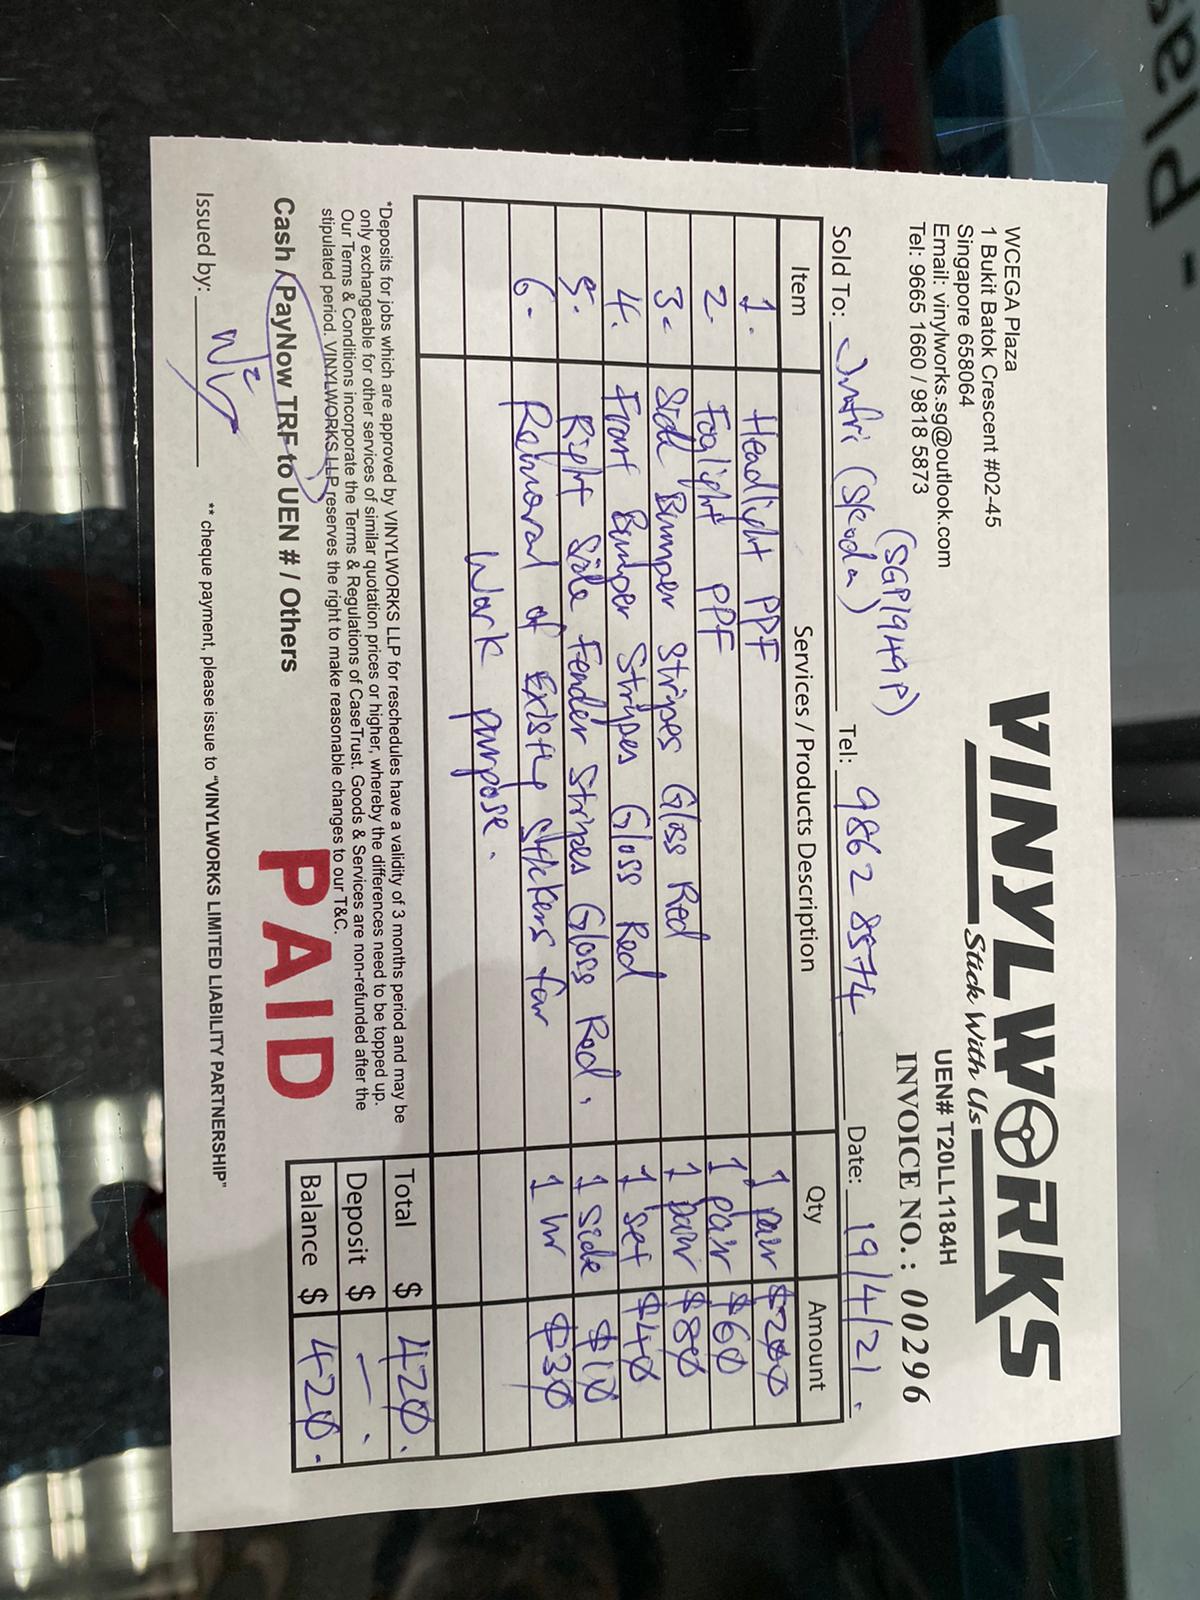 WCEGA Plaza
1 Bukit Batok Crescent #02-45
Singapore 658064
Email: vinylworks.sg@outlook.com
Tel: 9665 1660 / 9818 5873
VINYLWORKS
Stick With Us
UEN# T20LL1184H
INVOICE NO. : 00296
(SGP1949P)
Sold To: (Skoda) Tel: 9862 8574 Date: 19/4/21.
Item Services / Products Description Qty Amount
1. Headlight PPF 1 pair $200
2. Foglight PPF 1 pair $60
3. Side Bumper Stripes Gloss Red 1 pair $80
4. Front Bumper Stripes Gloss Red 1 set $40
5. Right Side Fender Stripes Gloss Red. 1 side $10
6. Removal of Existing Stickers for 1 hr $30
Work purpose.
*Deposits for jobs which are approved by VINYLWORKS LLP for reschedules have a validity of 3 months period and may be
only exchangeable for other services of similar quotation prices or higher, whereby the differences need to be topped up.
Our Terms & Conditions incorporate the Terms & Regulations of CaseTrust. Goods & Services are non-refunded after the
stipulated period. VINYLWORKS LLP reserves the right to make reasonable changes to our T&C.
Total $ 420.
Deposit $ —.
Balance $ 420.
Cash / PayNow TRF to UEN # / Others
PAID
Issued by:
** cheque payment, please issue to "VINYLWORKS LIMITED LIABILITY PARTNERSHIP"